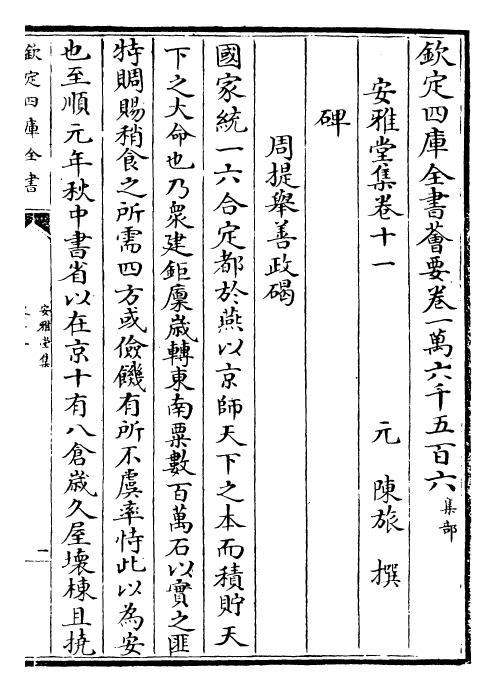 欽定四庫全書薈要卷一萬六千五百六集部
安雅堂集卷十一
元 陳旅 撰
碑
周提舉善政碣
國家統一六合定都於燕以京師天下之本而積貯天
下之大命也乃衆建鉅廩歲轉東南粟數百萬石以實之匪
特賙賜稍食之所需四方或儉饑有所不虞率恃此以為安
也至順元年秋中書省以在京十有八倉歲久屋壞棟且撓
欽定四庫全書
安雅堂集
一